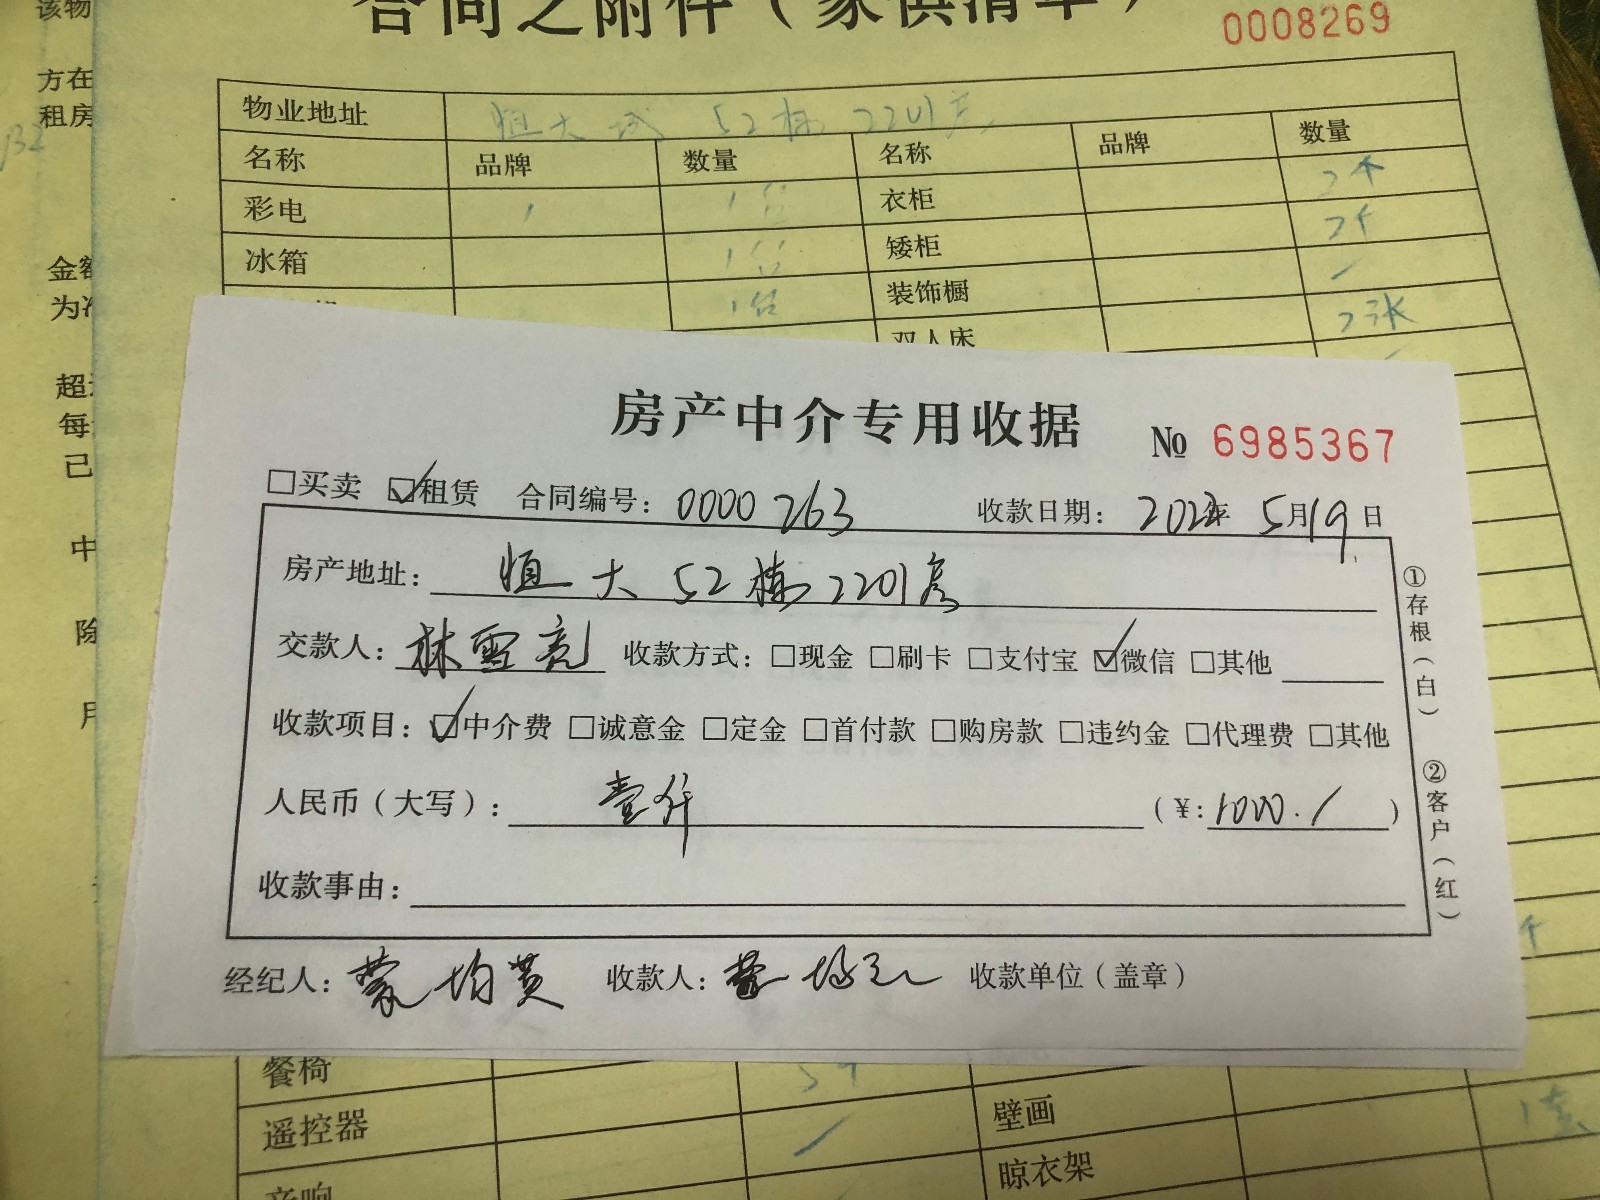 该物
方在
租房
金额
为
超
每
己
中
除
合同之附件（家俱清单）
0008269
物业地址 恒大城 52栋2201房
名称 品牌 数量 名称 品牌 数量
彩电 1台 衣柜 2个
冰箱 1台 矮柜 2个
1台 装饰橱
双人床 2张
房产中介专用收据 № 6985367
□买卖 ☑租赁 合同编号：0000263 收款日期：2022年 5月19日
房产地址：恒大52栋2201房
交款人：林雪亮 收款方式：□现金 □刷卡 □支付宝 ☑微信 □其他
收款项目：☑中介费 □诚意金 □定金 □首付款 □购房款 □违约金 □代理费 □其他
人民币（大写）：壹仟 （¥：1000./）
收款事由：
①存根（白）
②客户（红）
经纪人：蒙均英 收款人：蒙均 收款单位（盖章）
餐椅 5个
遥控器 壁画 1套
音响 晾衣架